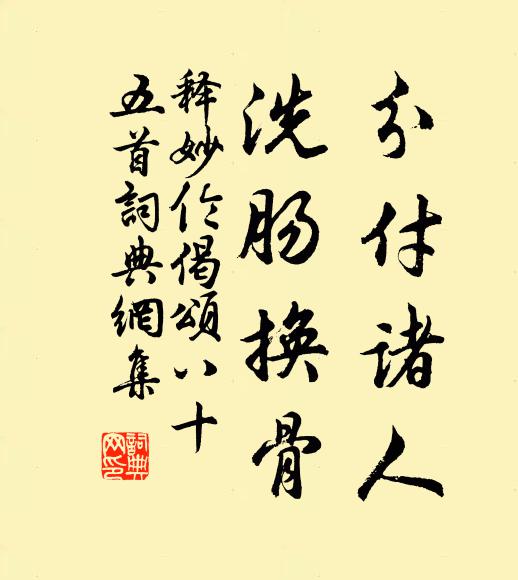 分付诸人
洗肠换骨
释妙伦偈颂八十
五首詞典網集
詞典网印